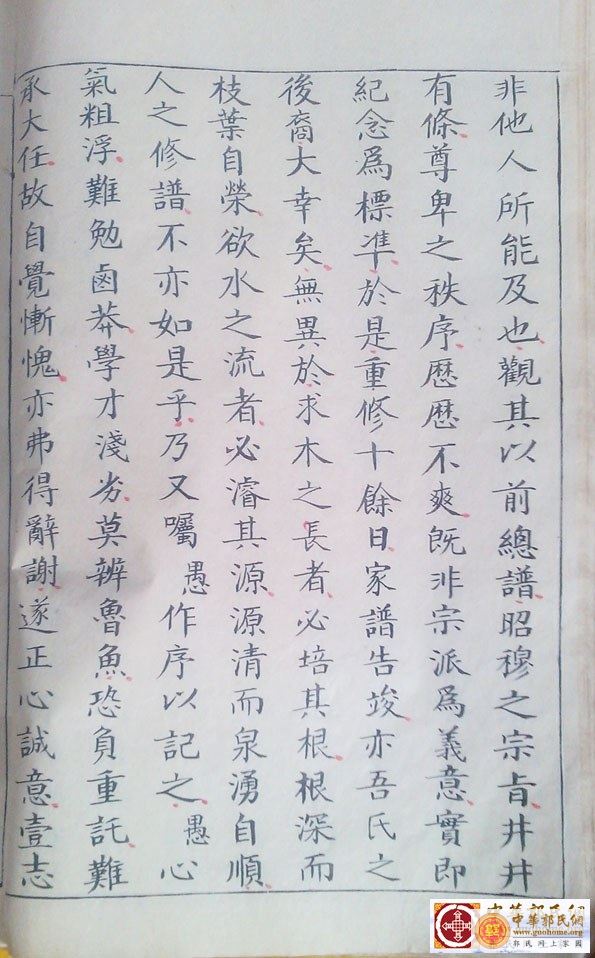 非他人所能及也觀其以前總譜昭穆之宗旨井井
有條尊卑之秩序歷歷不爽既非宗派為義意實即
紀念為標準於是重修十餘日家譜告竣亦吾氏之
後裔大幸矣無異於求木之長者必培其根根深而
枝葉自榮欲水之流者必濬其源源清而泉湧自順
人之修譜不亦如是乎乃又囑愚作序以記之愚心
氣粗浮難勉鹵莽學才淺劣莫辨魯魚恐負重託難
承大任故自覺慚愧亦弗得辭謝遂正心誠意壹志
中華郭氏網
www.guohome.org
郭氏网上家園